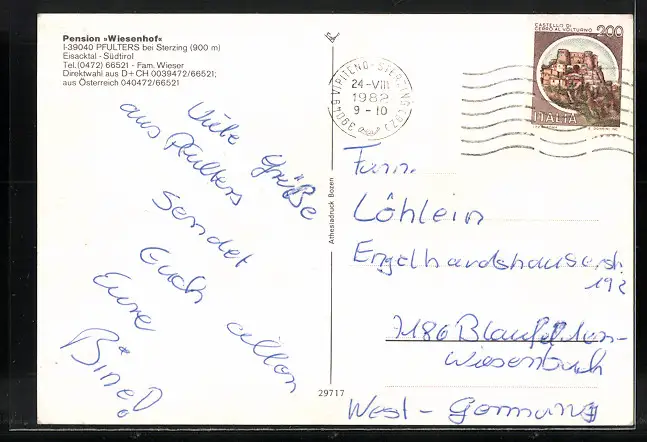 Pension »Wiesenhof«
I-39040 PFULTERS bei Sterzing (900 m)
Eisacktal - Südtirol
Tel.(0472) 66521 - Fam. Wieser
Direktwahl aus D+CH 0039472/66521;
aus Österreich 040472/66521
Viele Grüße
aus Pfulters
sendet
Euch allen
Eure
Athesiadruck Bozen
29717
CASTELLO DI
CERRO AL VOLTURNO
200
ITALIA
39049 VIPITENO-STERZING
24-VIII
1982
9-10
Fam.
Löhlein
Engelhardshauserstr.
192
7186 Blaufelden-
Wiesenbach
West-Germany